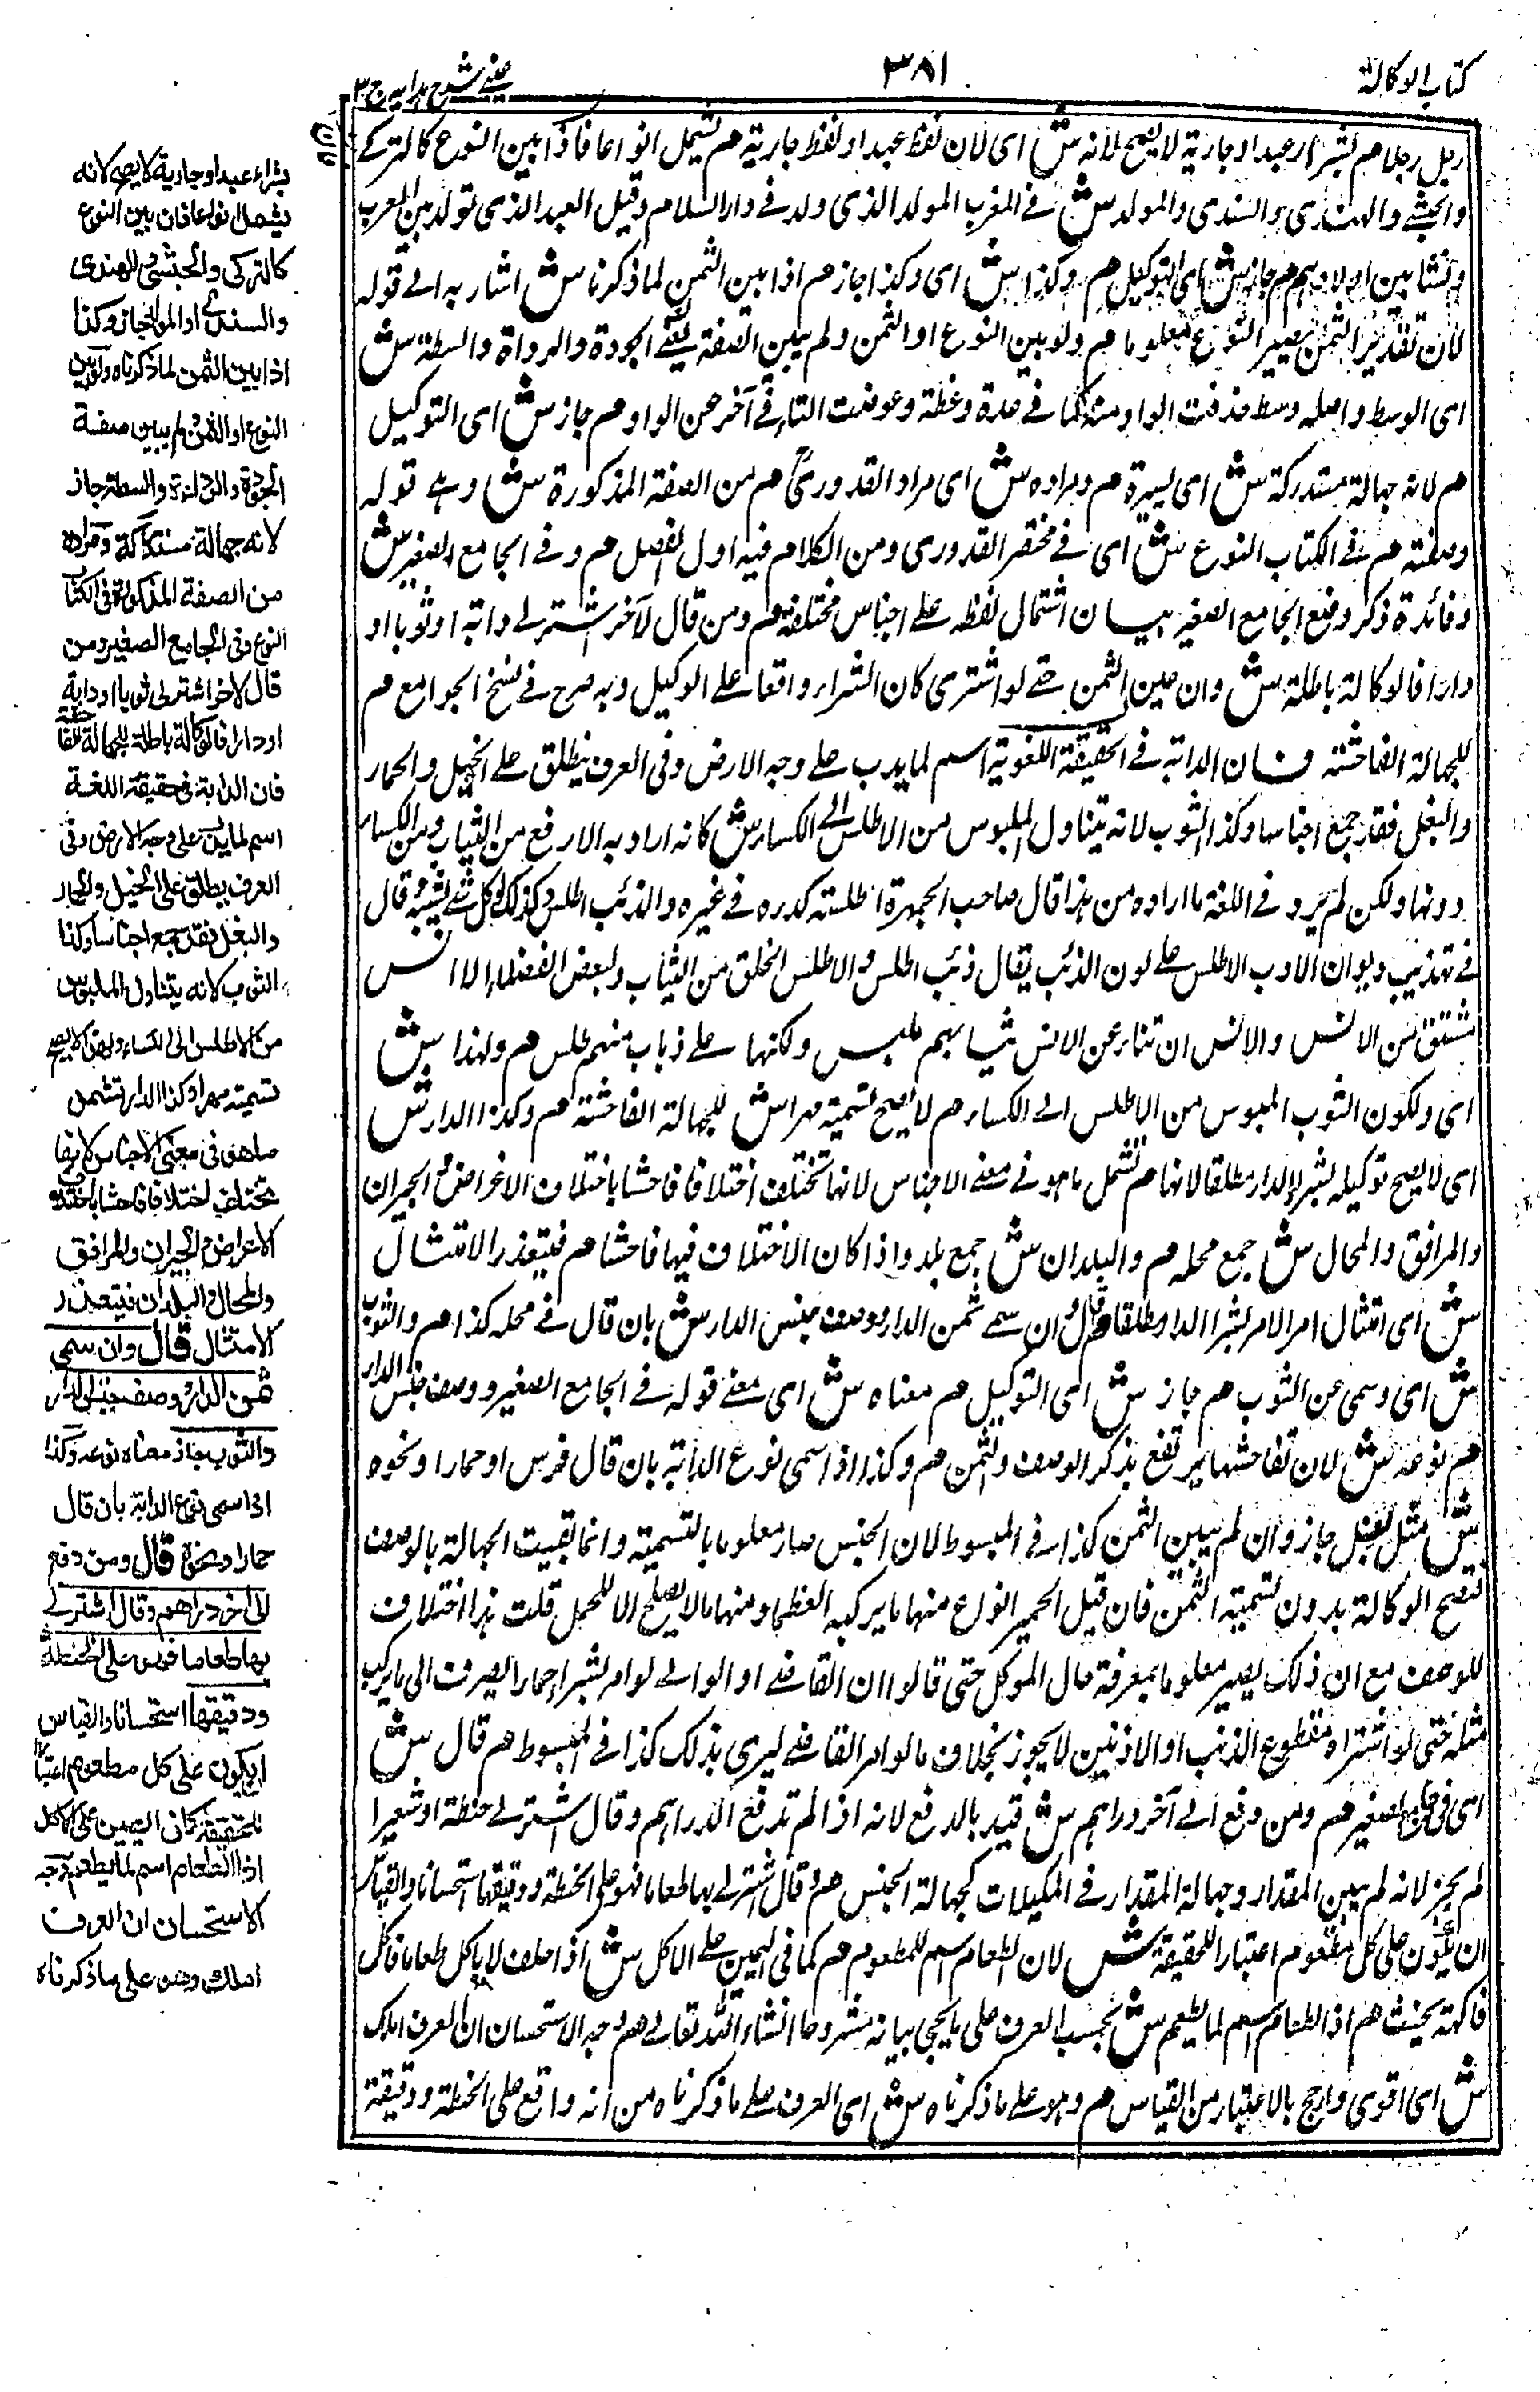 كتاب الوكالة
٣٨١
عينى شرح هدايه ج ٣
رجل رجلا هم بشراء عبد او جارية لا يصح لانه ش اى لان لفظ عبد او لفظ جارية هم تشمل انواعا فاذا بين النوع كالتركے
والحبشے والهندى والسندى والمولد ش فے المغرب المولد الذى ولد فے دار السلام وقيل العبد الذى تولد بين العرب
ونشا بين اولادهم هم جاز ش اى التوكيل هم وكذا ش اى وكذا جاز هم اذا بين الثمن لما ذكرنا ش اشار به الے قوله
لان تقدير الثمن يصير النوع معلوما هم ولو بين النوع او الثمن ولم يبين الصفة يعنے الجودة والرداة والسطة ش
اى الوسط واصله وسط حذفت الواو منه كما فے عدة وعظة وعوضت التاء فے آخر عن الواو هم جاز ش اى التوكيل
هم لانه جهالة مستدركة ش اى يسيرة هم ومراده ش اى مراد القدورى هم من الصفة المذكورة ش وهے قوله
وصفته هم فے الكتاب النوع ش اى فے مختصر القدورى ومن الكلام فيه اول الفصل هم وفے الجامع الصغير ش
وفائدة ذكر وضع الجامع الصغير بيان اشتمال لفظه علے اجناس مختلفة هم ومن قال لآخر اشتر لے دابة او ثوبا او
دارا فالوكالة باطلة ش وان عين الثمن حتے لو اشترى كان الشراء واقعا علے الوكيل وبه صرح فے نسخ الجوامع هم
للجهالة الفاحشة فان الدابة فے الحقيقة اللغوية اسم لما يدب علے وجه الارض وفى العرف يطلق علے الخيل والحمار
والبغل فقد جمع اجناسا وكذا الثوب لانه يتناول الملبوس من الاطلس الى الكساء ش كانه اراد به الارفع من الثياب ومن الكساء
دونها ولكن لم يرد فے اللغة ما اراده من هذا قال صاحب الجمهرة اطلسته كدره فے غيره والذئب اطلس وكذلك كل شے يشبهه وقال
فے تهذيب ديوان الادب الاطلس علے لون الذئب يقال ذئب اطلس والاطلس الخلق من الثياب ولبعض الفضلاء الا انس
مشتق من الانس والانس ان تناء عن الانس ثيابهم ملبس ولكنها علے ذباب منهم طلس هم ولهذا ش
اى ولكون الثوب الملبوس من الاطلس الے الكساء هم لا يصح تسمية مهرا ش للجهالة الفاحشة هم وكذا الدار ش
اى لا يصح توكيله بشراء الدار مطلقا لانها هم تشمل ما هو فے معنے الاجناس لانها تختلف اختلافا فاحشا باختلاف الاغراض والجيران
والمرافق والمحال ش جمع محله هم والبلدان ش جمع بلد واذا كان الاختلاف فيها فاحشا هم فيتعذر الامتثال
ش اى امتثال امر الامر بشراء الدار مطلقا هم قال وان سمے ثمن الدار ووصف جنس الدار ش بان قال فے محله كذا هم والثوب
ش اى وسمى عن الثوب هم جاز ش اى التوكيل هم معناه ش اى معنے قوله فے الجامع الصغير ووصف جنس الدار
هم نوعه ش لان تفاحشها يرتفع بذكر الوصف والثمن هم وكذا اذا سمى نوع الدابة بان قال فرس او حمارا ونحوه
ش مثل بغل جاز وان لم يبين الثمن كذا فى المبسوط لان الجنس صار معلوما بالتسمية وانما بقيت الجهالة بالوصف
فتصح الوكالة بدون تسمية الثمن فان قيل الحمير انواع منها ما يركبه العظماء ومنها ما لا يصلح الا للحمل قلت هذا اختلاف
للوصف مع ان ذلك يصير معلوما بمعرفة حال الموكل حتى قالوا ان القاضے او الوالے لو امر بشراء حمارا يصرف الى ما يركب
مثله حتى لو اشتراه مقطوع الذنب او الاذنين لا يجوز بخلاف ما لو امر القاضے ليرى بذلك كذا فے المبسوط هم قال ش
اى فى الجامع الصغير هم ومن دفع الے آخر دراهم ش قيد بالدفع لانه اذا لم تدفع الدراهم وقال اشتر لے حنطة او شعيرا
لم يجز لانه لم يبين المقدار وجهالة المقدار فے المكيلات كجهالة الجنس هم وقال اشتر لے بها طعاما فهو على الحنطة ودقيقها استحسانا والقياس
ان يكون على كل مطعوم اعتبارا للحقيقة ش لان الطعام اسم للمطعوم هم كما فى اليمين علے الاكل ش اذا حلف لا ياكل طعاما فاكل
فاكهة يحنث هم اذ الطعام اسم لما يطعم ش بحسب العرف على ما يجى بيانه مشروحا انشاء الله تعالے هم وجه الاستحسان ان العرف املك
ش اى اقوى وارجح بالاعتبار من القياس هم وهو علے ما ذكرناه ش اى العرف علے ما ذكرناه من انه واقع على الحنطة ودقيقة
بشراء عبد او جارية لا يصح لانه
يشمل انواعا فان بين النوع
كالتركى والحبشى والهندى
والسندے او المولد جاز وكذا
اذا بين الثمن لما ذكرناه ولو بين
النوع او الثمن ولم يبين صفة
الجودة والرداءة والسطة جاز
لانه جهالة مستدركة ومراده
من الصفة المذكورة فى الكتاب
النوع وفى الجامع الصغير ومن
قال لاخر اشتر لى ثوبا او دابة
او دارا فالوكالة باطلة للجهالة الفاحشة
فان الدابة فى حقيقة اللغة
اسم لما يدب على وجه الارض وفى
العرف يطلق على الخيل والحمار
والبغل فقد جمع اجناسا وكذا
الثوب لانه يتناول الملبوس
من الاطلس الى الكساء ولهذا لا يصح
تسميته مهرا وكذا الدار تشمل
ما هو فى معنى الاجناس لانها
تختلف اختلافا فاحشا باختلاف
الاغراض والجيران والمرافق
والمحال والبلدان فيتعذر
الامتثال قال وان سمى
ثمن الدار ووصف جنس الدار
والثوب جاز معناه نوعه وكذا
اذا سمى نوع الدابة بان قال
حمارا ونحوه قال ومن دفع
الى اخر دراهم وقال اشتر لے
بها طعاما فهو على الحنطة
ودقيقها استحسانا والقياس
ان يكون على كل مطعوم اعتبارا
للحقيقة كما فى اليمين على الاكل
اذ الطعام اسم لما يطعم وجه
الاستحسان ان العرف
املك وهو على ما ذكرناه